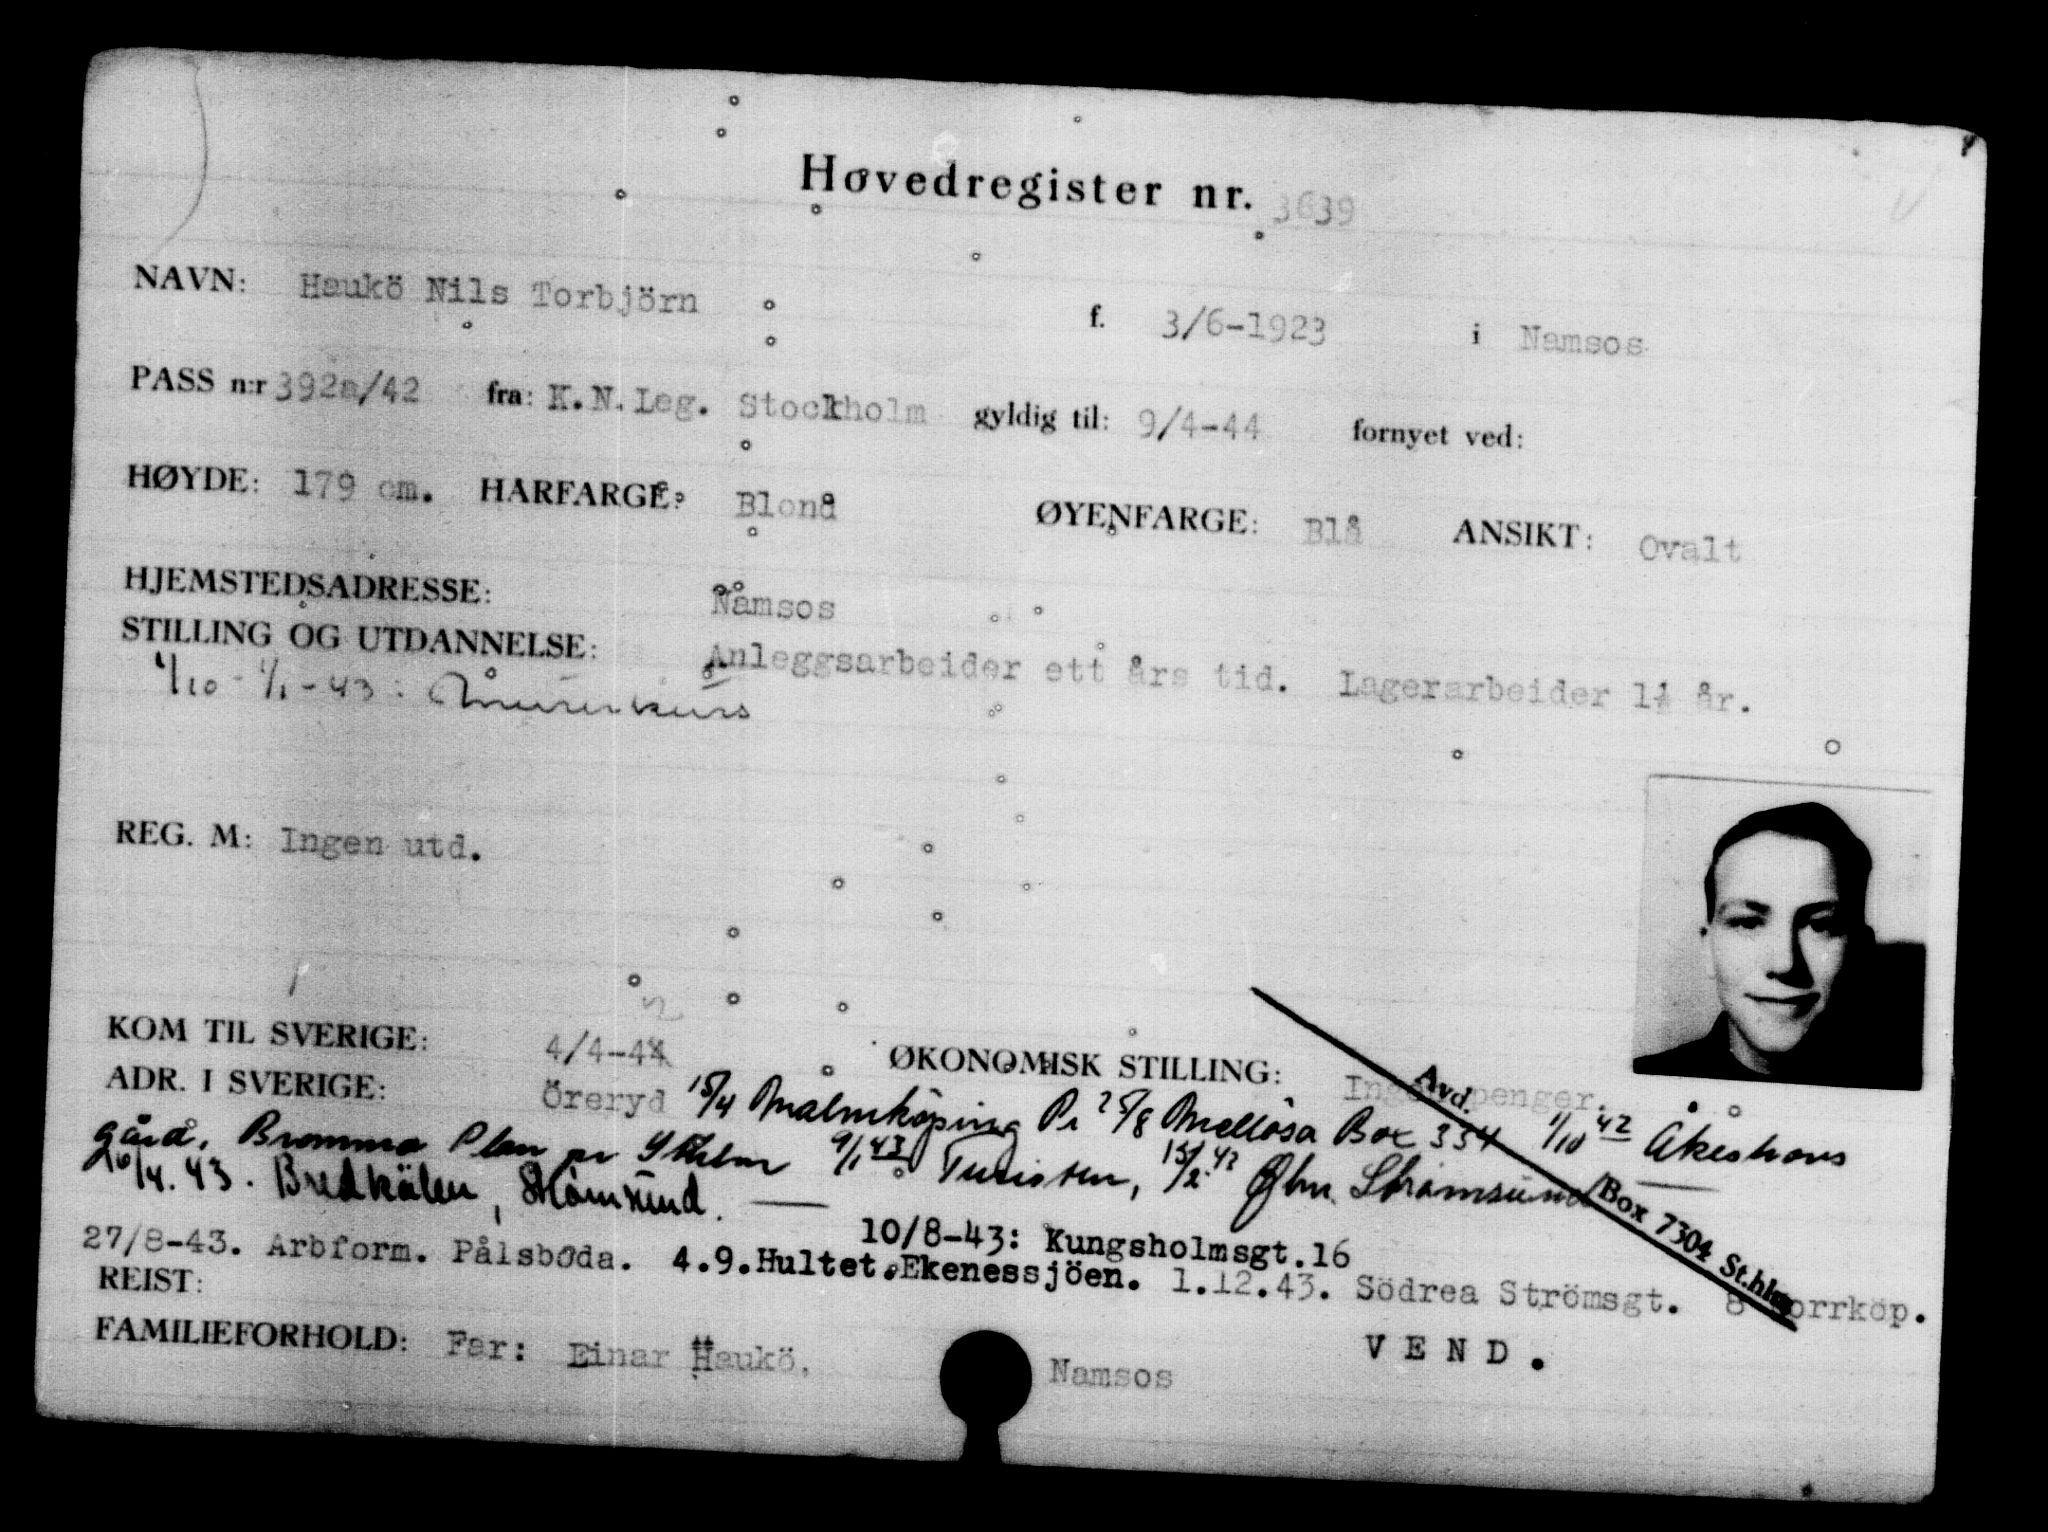 Hovedregister nr. 3639
NAVN: Haukö Nils Torbjörn f. 3/6-1923 i Namsos
PASS n:r 392a/42 fra: K.N.Leg. Stockholm gyldig til: 9/4-44 fornyet ved:
HØYDE: 179 cm. HARFARGE: Blond ØYENFARGE: Blå ANSIKT: Ovalt
HJEMSTEDSADRESSE: Namsos
STILLING OG UTDANNELSE: Anleggsarbeider ett års tid. Lagerarbeider 1½ år.
1/10 - 1/1 - 43: Murerkurs
REG. M: Ingen utd.
KOM TIL SVERIGE: 4/4-44 ØKONOMISK STILLING: Ingen penger.
ADR. I SVERIGE: Öreryd 15/4 Malmköping Pr 25/8 Mellösa Box 334 1/10 42 Åkeshovs
gård, Bromma Plan pr Sthlm 9/1 43 Turisten, 15/2 43 Strömsund
26/4. 43. Bredkälen, Strömsund. —
10/8-43: Kungsholmsgt.16
27/8-43. Arbform. Pålsboda. 4.9.Hultet.Ekenessjöen. 1.12.43. Södrea Strömsgt. 8 Norrköp.
Avd. /Box 7304 St.hlm
REIST:
FAMILIEFORHOLD: Far: Einar Haukö. Namsos
VEND.